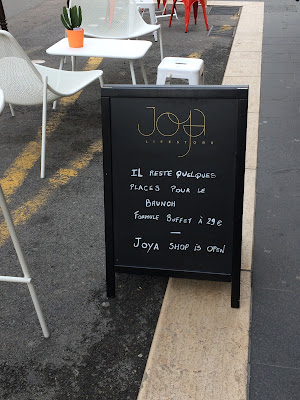 JOYA
LIFESTORE
IL RESTE QUELQUES
PLACES POUR LE
BRUNCH
FORMULE BUFFET À 29€
—
JOYA SHOP IS OPEN